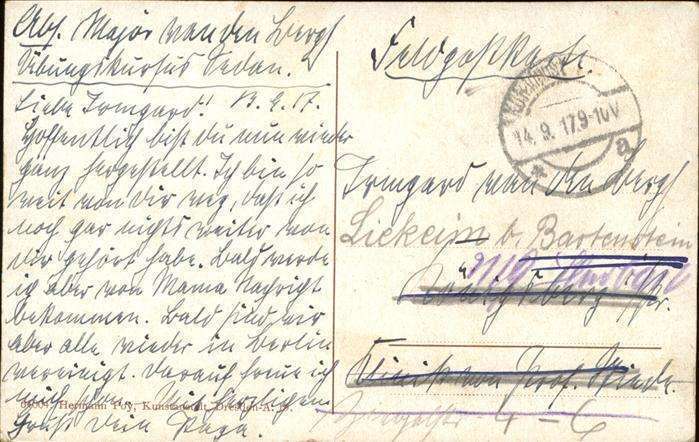 Abs. Major van den Bergh
Übungskursus Sedan.
Liebe Irmgard! 13.9.17.
Hoffentlich bist du nun wieder
ganz hergestellt. Ich bin so
weit von dir weg, daß ich
noch gar nichts weiter von
dir gehört habe. Bald werde
ich aber von Mama Nachricht
bekommen. Bald sind wir
aber alle wieder in Berlin
vereinigt. Darauf freue ich
mich schon. Mit herzlichem
Gruß Dein Papa.
Hermann Poy, Kunstanstalt, Dresden-A.
Feldpostkarte.
14.9.17.9-10V
* a
Irmgard van den Bergh
Liekeim b. Bartenstein
Königsberg i/Pr.
Klinik von Prof.
4-6